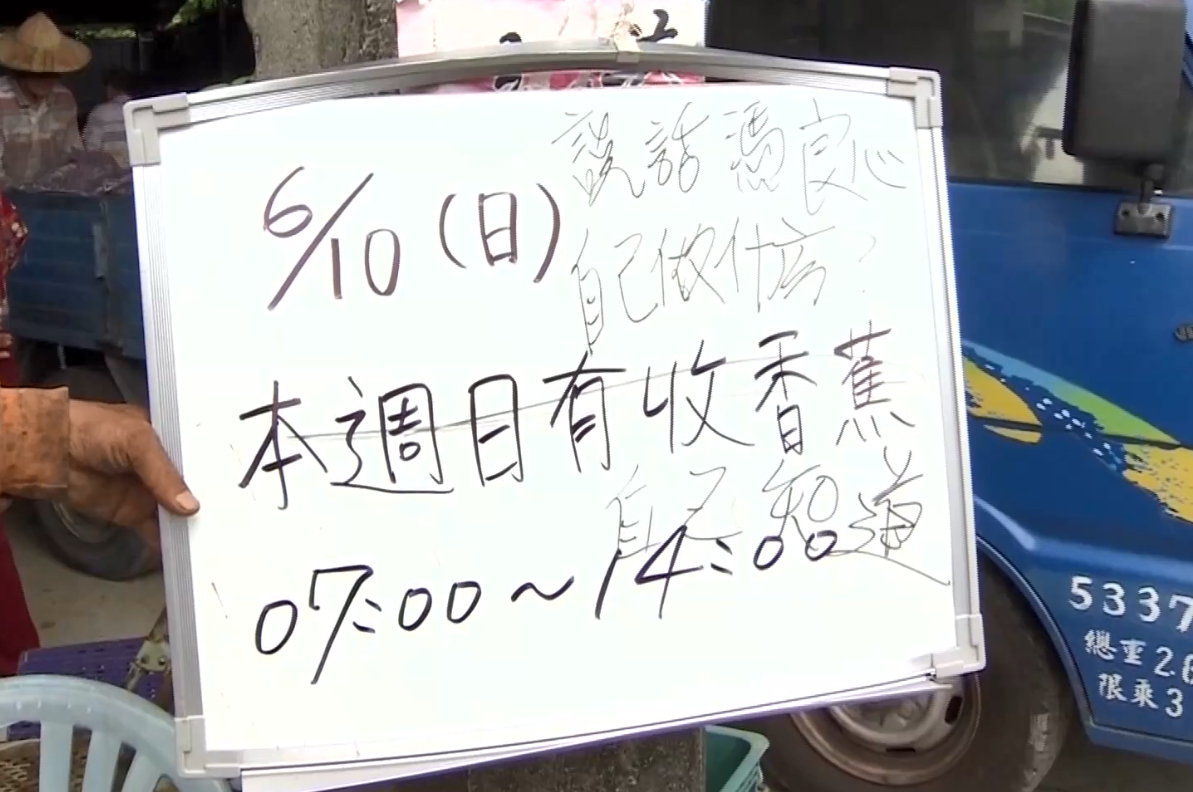 6/10(日)
說話憑良心
自己做什広?
本週日有收香蕉
自己知道
07:00~14:00
5337
總重2.6
限乘3